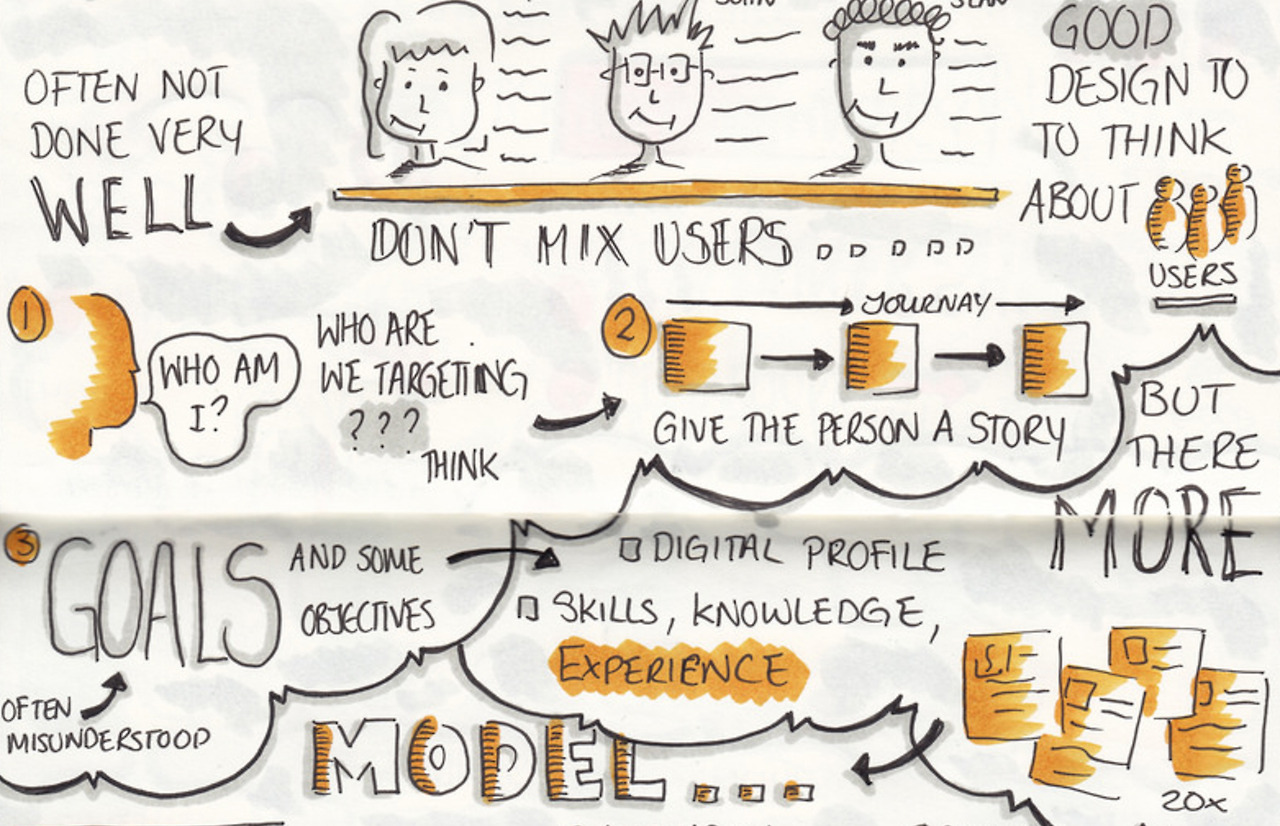 OFTEN NOT
DONE VERY
WELL
DON'T MIX USERS
GOOD
DESIGN TO
TO THINK
ABOUT
USERS
1
WHO AM
I?
WHO ARE
WE TARGETTING
???
THINK
2
JOURNAY
GIVE THE PERSON A STORY
BUT
THERE
MORE
3
GOALS
AND SOME
OBJECTIVES
OFTEN
MISUNDERSTOOD
DIGITAL PROFILE
SKILLS, KNOWLEDGE,
EXPERIENCE
MODEL...
20x